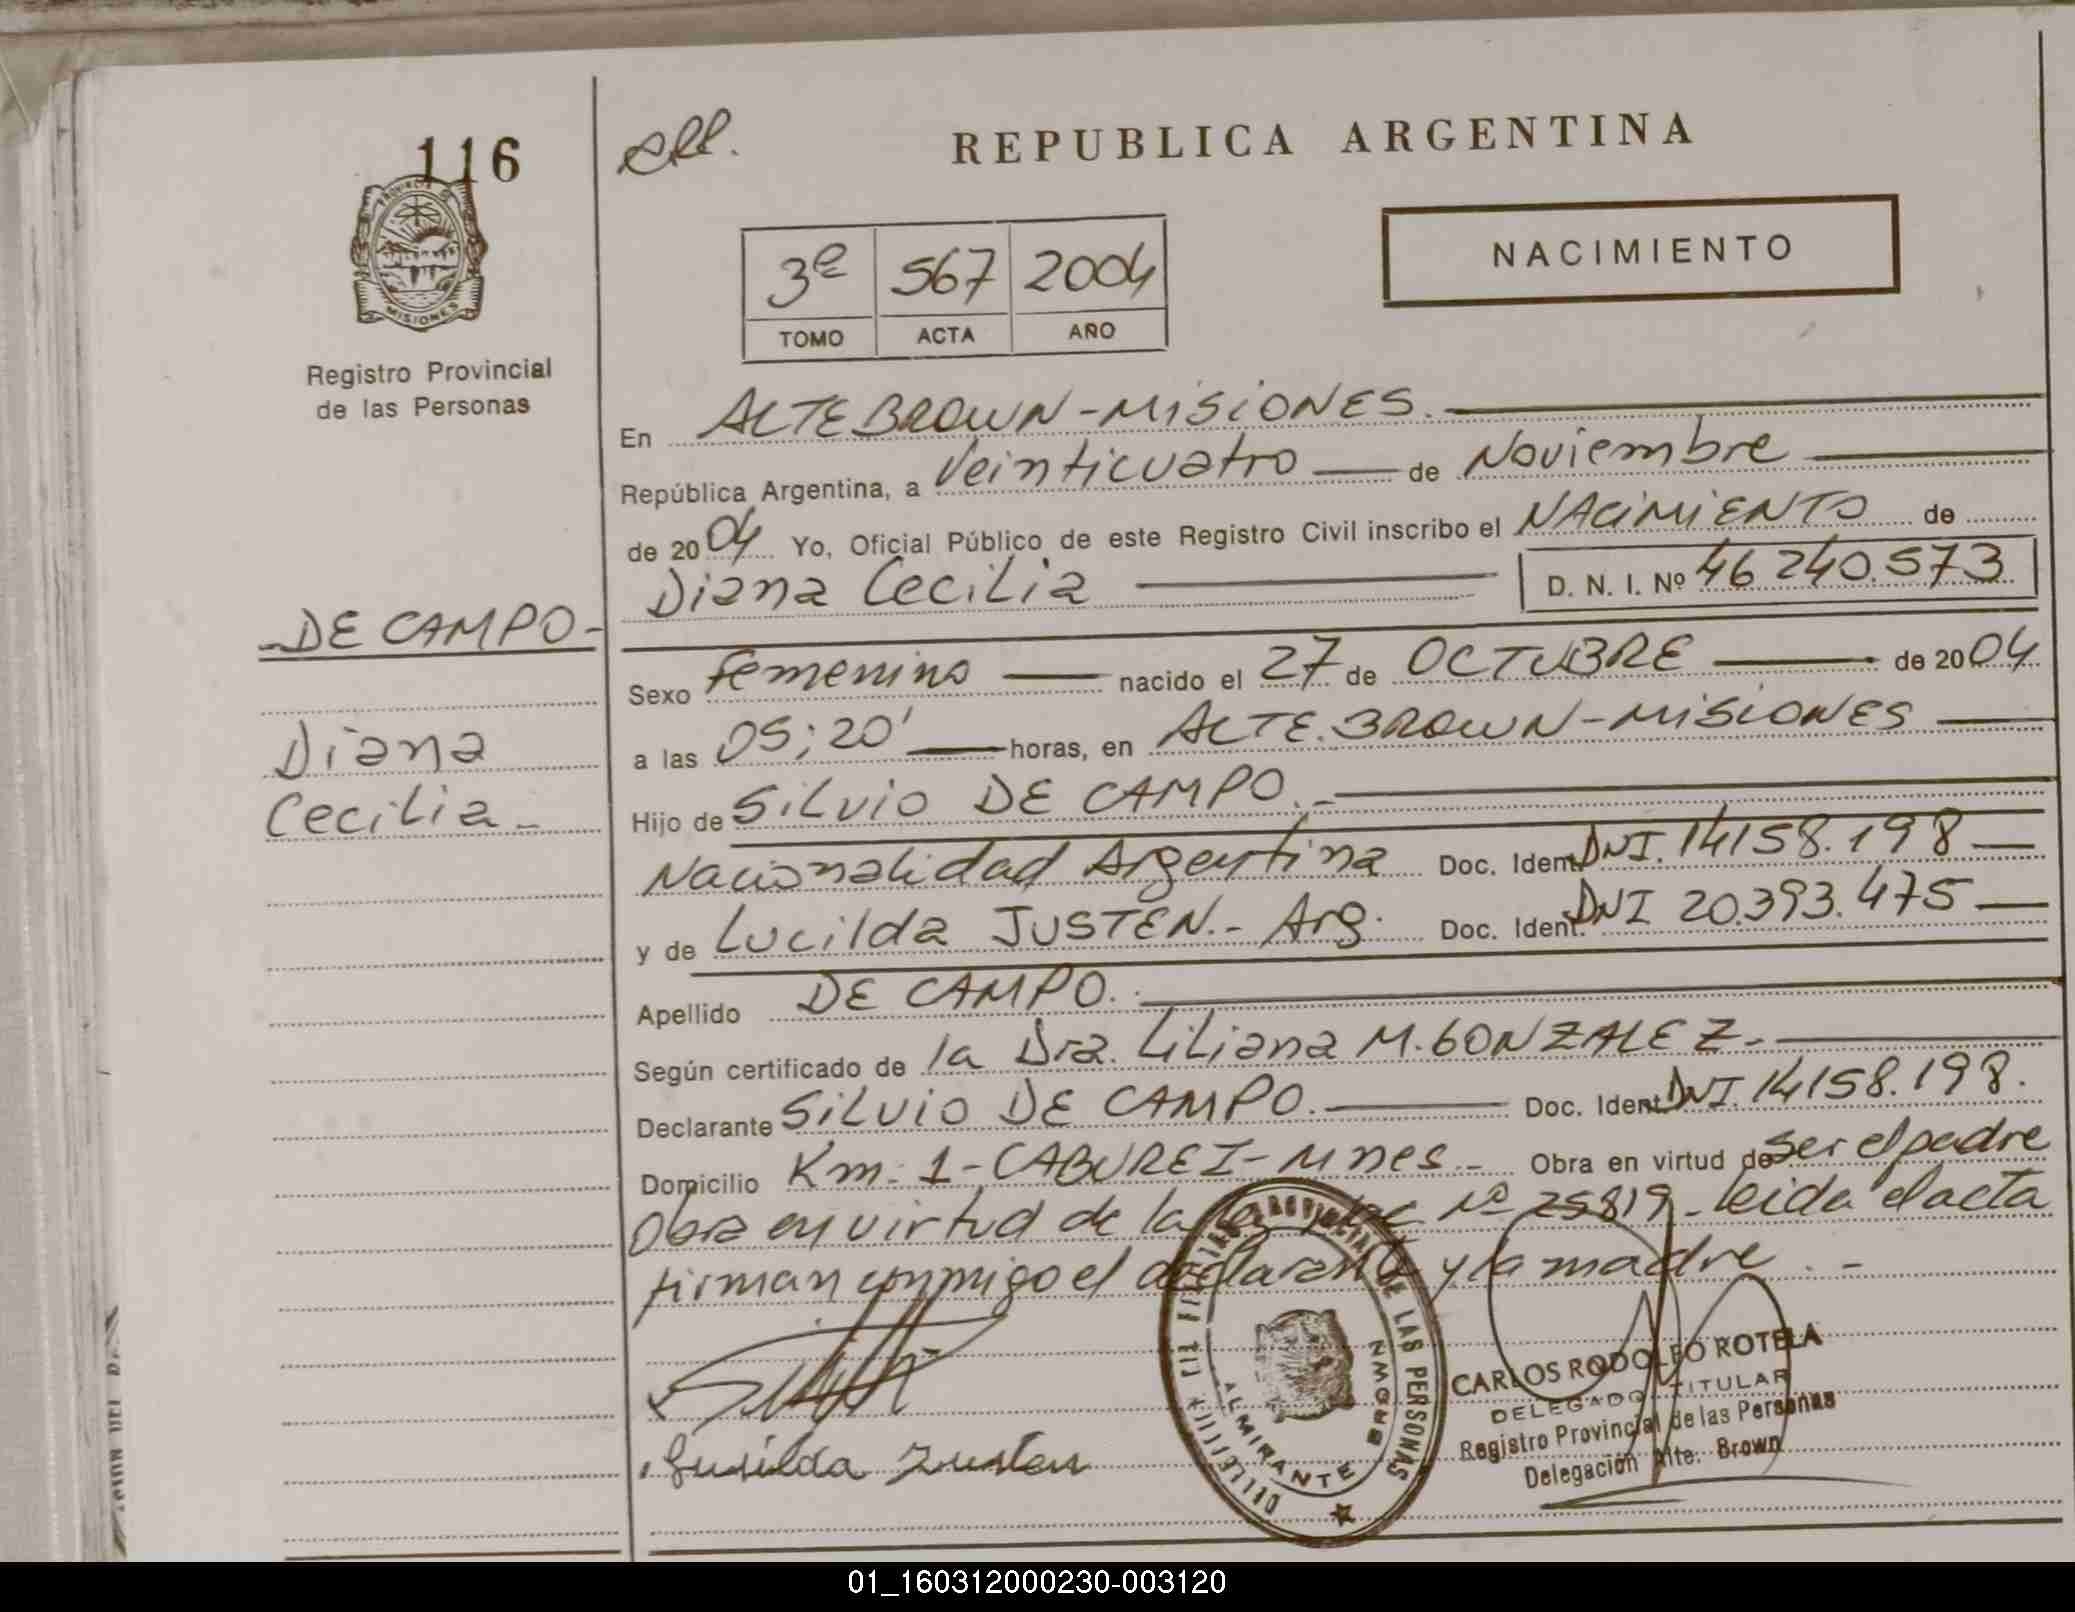 116
PROVINCIA DE
MISIONES
Registro Provincial
de las Personas
REPUBLICA ARGENTINA
NACIMIENTO
3º 567 2004
TOMO ACTA AÑO
En ALTE BROWN-MISIONES.
República Argentina, a Veinticuatro de Noviembre
de 2004 Yo, Oficial Público de este Registro Civil inscribo el NACIMIENTO de
Diana Cecilia D. N. I. Nº 46 240.573
-DE CAMPO-
Diana
Cecilia-
Sexo Femenino nacido el 27 de OCTUBRE de 2004
a las 05;20' horas, en ALTE. BROWN-MISIONES
Hijo de SILVIO DE CAMPO.-
Nacionalidad Argentina Doc. Ident. DNI. 14158.198
y de Lucilda JUSTEN.- Arg. Doc. Ident. DNI 20.393.475
Apellido DE CAMPO.
Según certificado de la Dra. Liliana M. GONZALEZ.-
Declarante SILVIO DE CAMPO. Doc. Ident. DNI. 14158.198.
Domicilio Km. 1-CABUREI-Mnes.- Obra en virtud de Ser el padre
Obra en virtud de la Ley Nº 25819- Leida el acta
firman conmigo el declarante y la madre.-
Lucilda Justen
PROVINCIAL DE LAS PERSONAS
ALMIRANTE BROWN
CARLOS RODOLFO ROTELA
DELEGADO TITULAR
Registro Provincial de las Personas
Delegación Alte. Brown
01_160312000230-003120